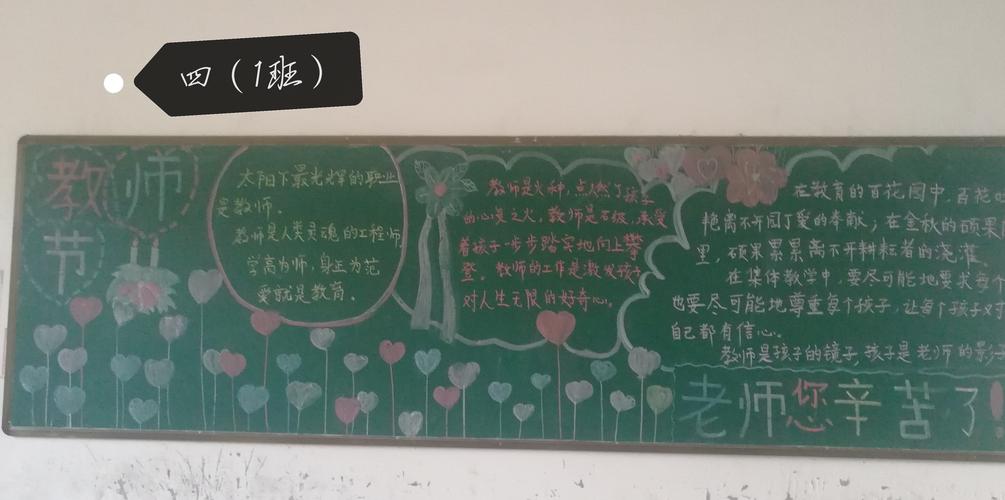 四（1班）
教师
节
太阳下最光辉的职业
是教师。
教师是人类灵魂的工程师
学高为师，身正为范
爱就是教育。
教师是火种，点燃了孩子
的心灵之火，教师是石级，承受
着孩子一步步踏实地向上攀
登。教师的工作是激发孩子
对人生无限的好奇心。
在教育的百花园中，百花
艳离不开园丁爱的奉献；在金秋的硕果
里，硕果累累离不开耕耘者的浇灌
在集体教学中，要尽可能地要求每
也要尽可能地尊重每个孩子，让每个孩子对
自己都有信心。
教师是孩子的镜子，孩子是老师的影
老师您辛苦了！